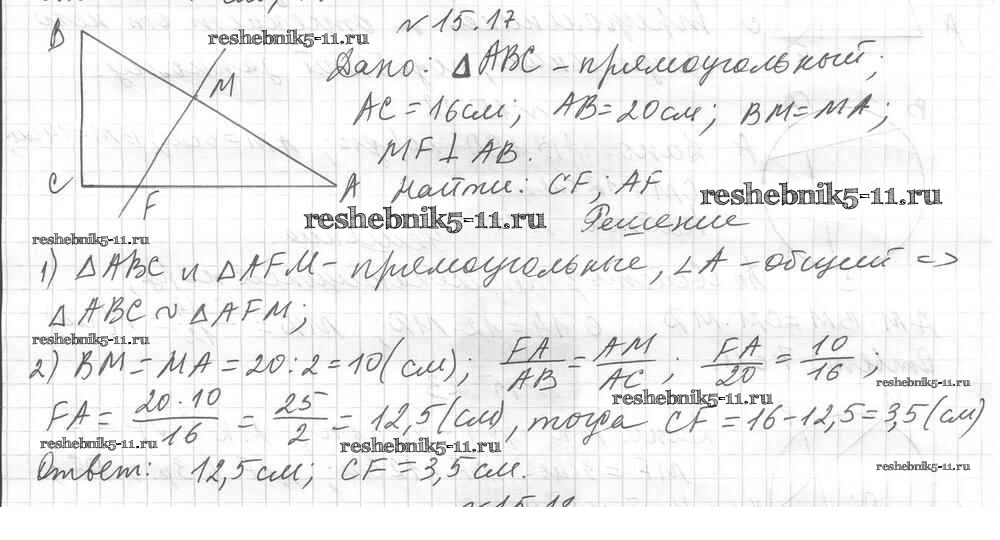 №15.17
reshebnik5-11.ru
Дано: Δ ABC – прямоугольный;
AC = 16см; AB = 20см; BM = MA;
MF ⊥ AB.
найти: CF; AF
reshebnik5-11.ru
B
M
C
F
A
reshebnik5-11.ru
Решение
reshebnik5-11.ru
1) Δ ABC и Δ AFM – прямоугольные, ∠A – общий =>
Δ ABC ~ Δ AFM;
reshebnik5-11.ru
2) BM = MA = 20:2 = 10(см); FA/AB = AM/AC; FA/20 = 10/16;
reshebnik5-11.ru
reshebnik5-11.ru
FA = 20·10/16 = 25/2 = 12,5(см), тогда CF = 16 – 12,5 = 3,5(см)
reshebnik5-11.ru
reshebnik5-11.ru
reshebnik5-11.ru
Ответ: 12,5см; CF = 3,5см.